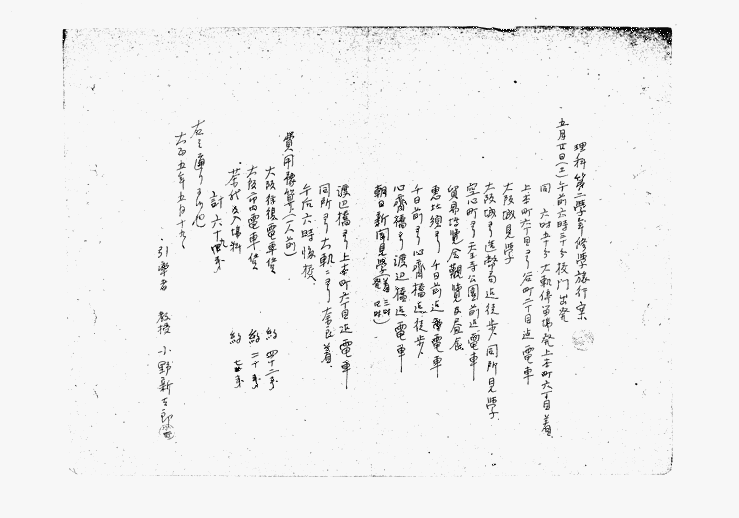 理科第二學年修學旅行案
五月廿日(土)午前六時三十分校門出発
同 六時五十分大軌停留場発上本町六丁目着
上本町六丁目ヨリ谷町二丁目迄電車
大阪城見学
大阪城ヨリ造幣局迄徒歩、同所見學
空心町ヨリ天王寺公園前迄電車
貿易博覽会觀覽及昼食
恵比須ヨリ千日前迄電車
千日前ヨリ心齋橋迄徒歩
心齋橋ヨリ渡辺橋迄電車
朝日新聞見學
渡辺橋ヨリ上本町六丁目迄電車
同所ヨリ大軌ニヨリ奈良着
午后六時帰校
費用豫算(一人前)
大阪往復電車賃 約四十二銭
大阪市内電車賃 約二十銭
茶代及入場料 約
計六十
右之通りニ候也
大正五年五月十
引率者 教授 小野新太郎